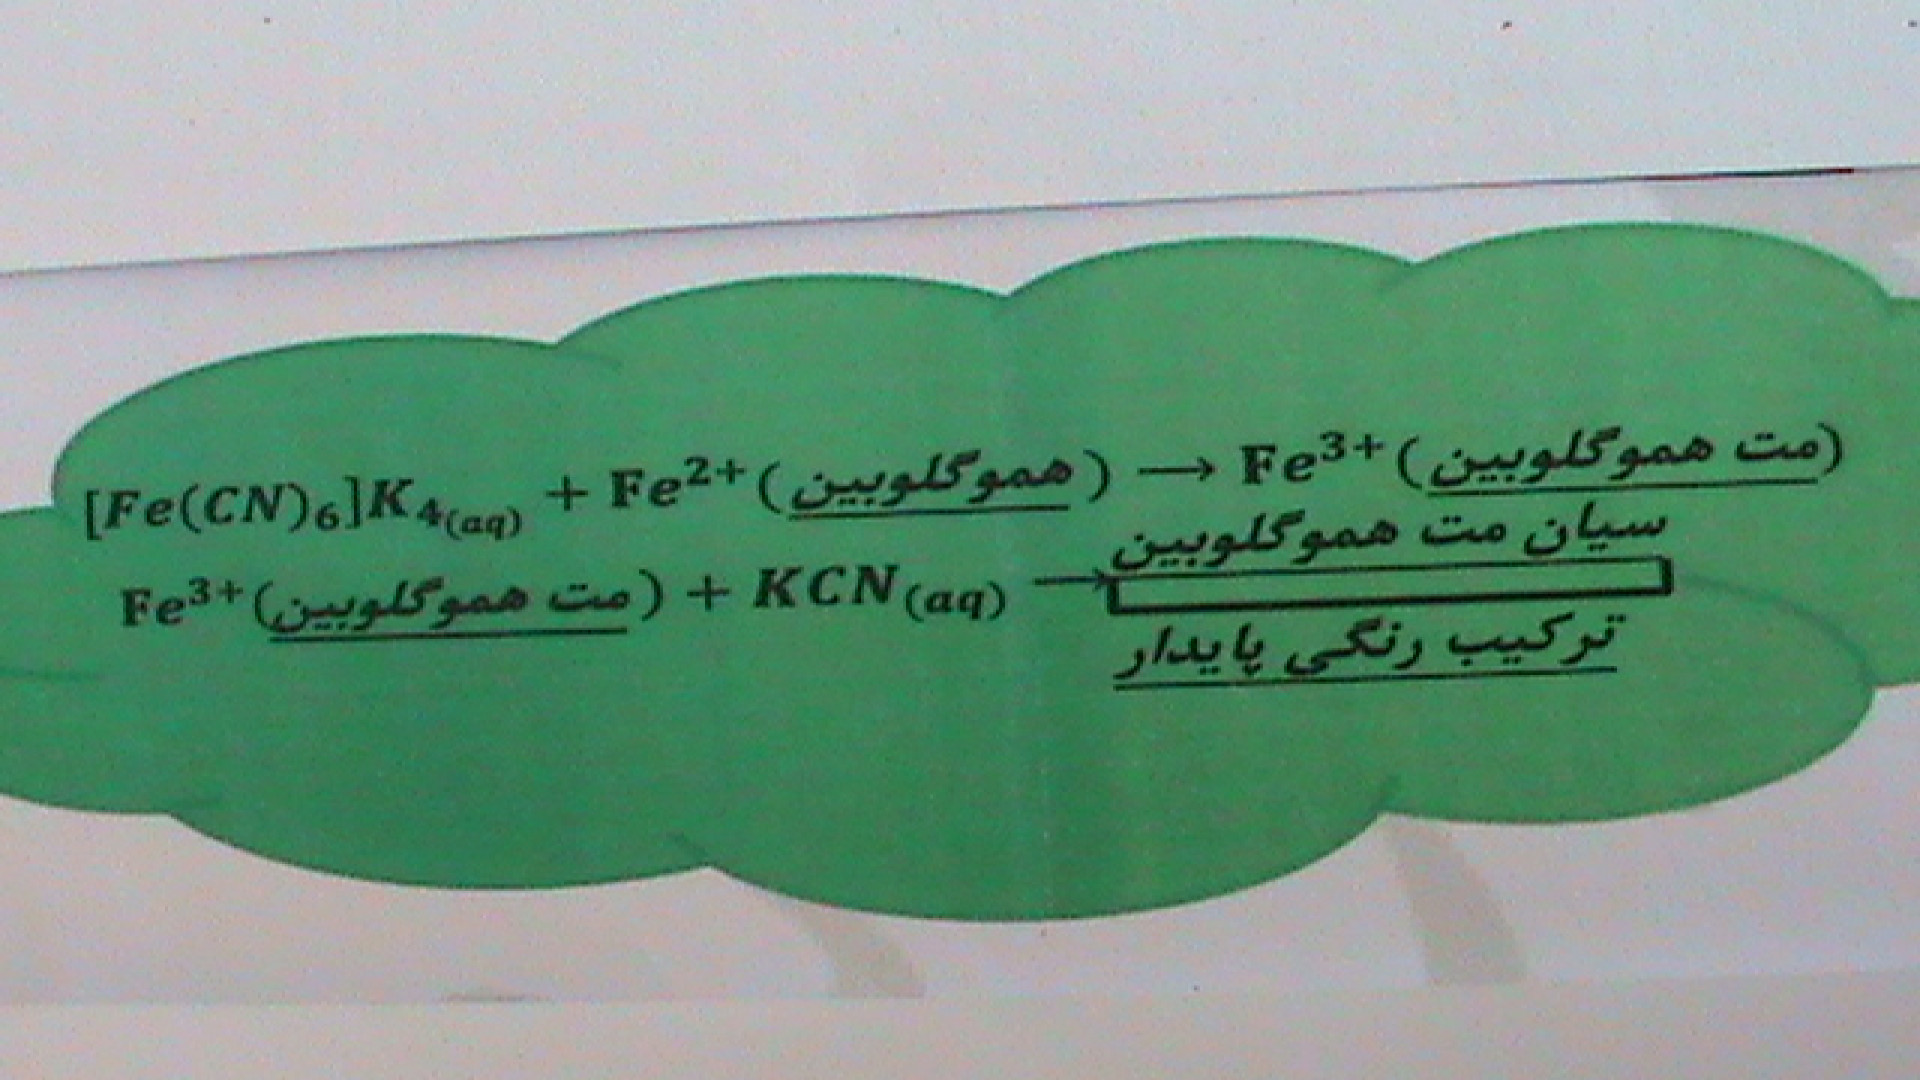 [Fe(CN)₆]K₄₍aq₎ + Fe²⁺(هموگلوبین) → Fe³⁺(مت هموگلوبین)
Fe³⁺(مت هموگلوبین) + KCN(aq) → سیان مت هموگلوبین
ترکیب رنگی پایدار